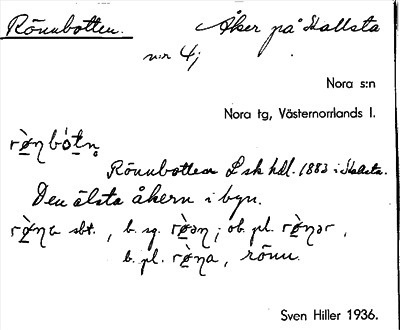 Rönnbotten. Åker på Hallsta
n:r 4;
Nora s:n
Nora tg, Västernorrlands l.
Rönnbotten L sk hdl. 1883 i Hallsta.
Den älsta åkern i byn.
sbt., b. sg. ; ob. pl. ,
b. pl. , rönn.
Sven Hiller 1936.